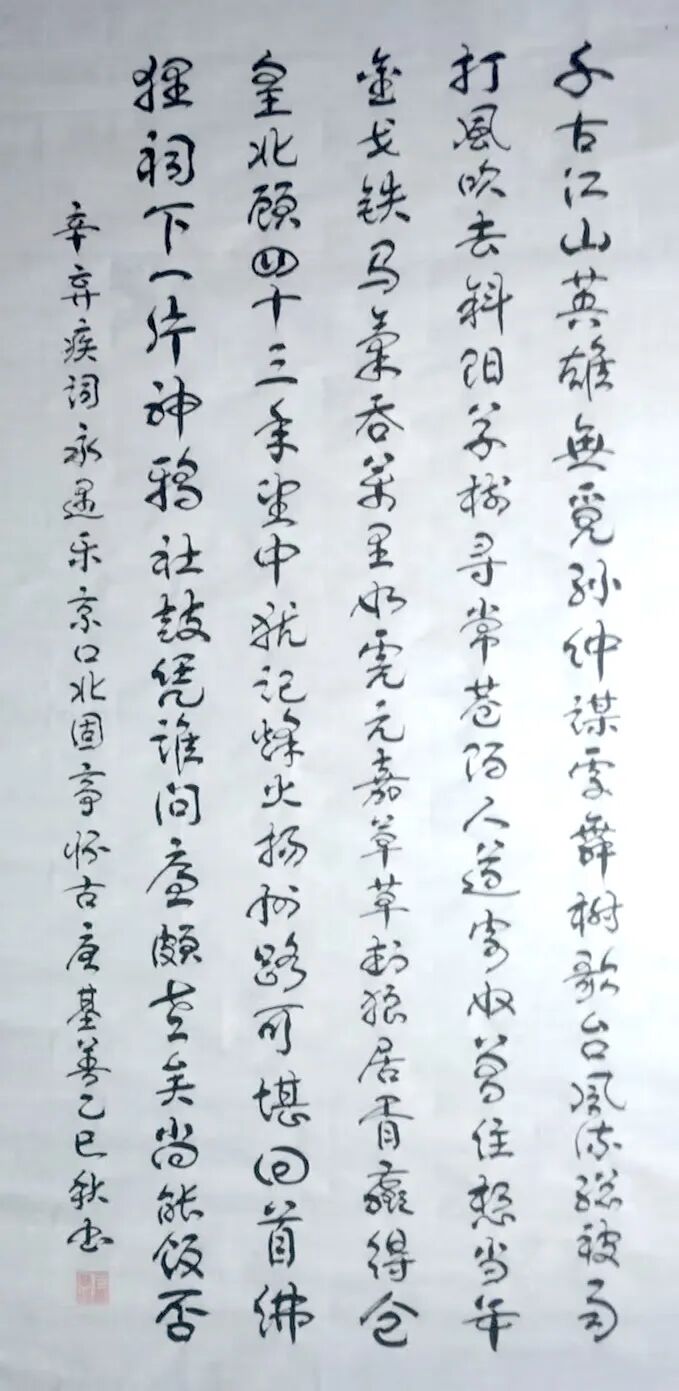 千古江山英雄無覓孙仲謀處舞榭歌台風流總被雨
打風吹去斜阳草樹寻常巷陌人道寄奴曾住想当年
金戈铁马氣吞萬里如虎元嘉草草封狼居胥贏得仓
皇北顾四十三年望中犹记烽火扬州路可堪回首佛
狸祠下一片神鸦社鼓凭谁问廉颇老矣尚能饭否
辛弃疾词永遇乐京口北固亭怀古唐基善乙巳秋书